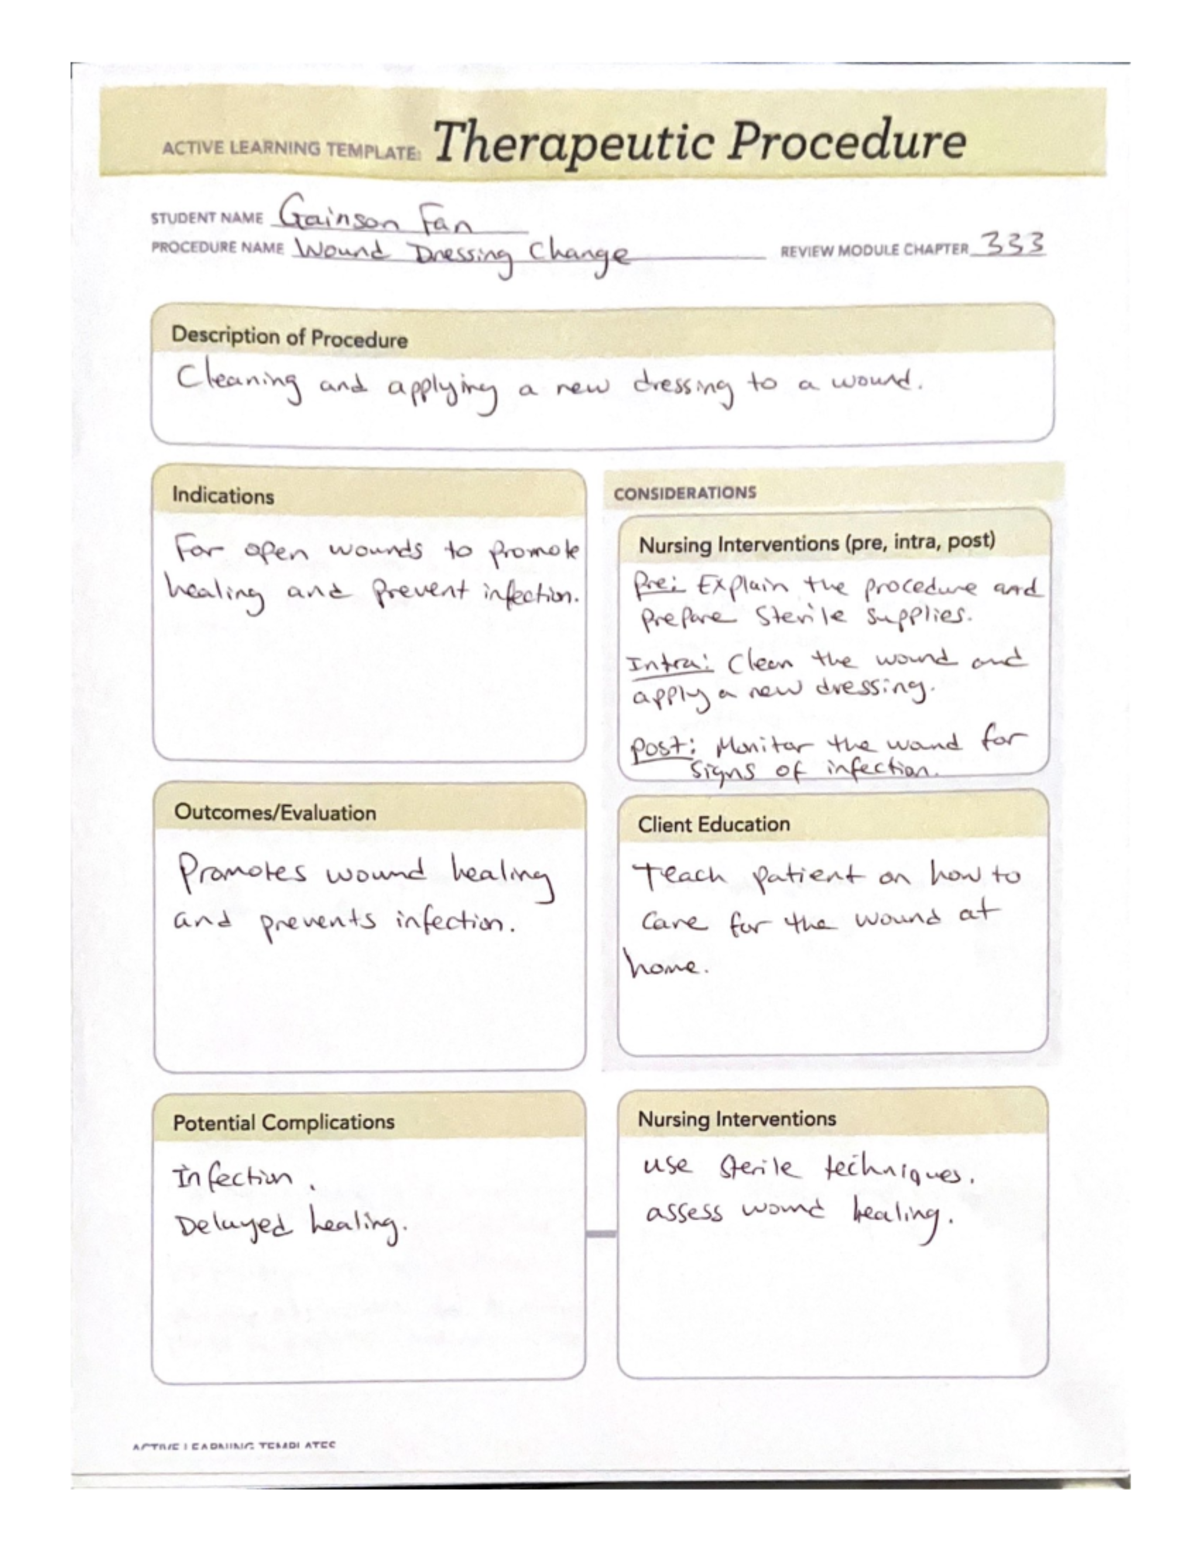 ACTIVE LEARNING TEMPLATE: Therapeutic Procedure
STUDENT NAME Gainson Fan
PROCEDURE NAME Wound Dressing Change REVIEW MODULE CHAPTER 333
Description of Procedure
Cleaning and applying a new dressing to a wound.
Indications
For open wounds to promote
healing and prevent infection.
CONSIDERATIONS
Nursing Interventions (pre, intra, post)
Pre: Explain the procedure and
prepare sterile supplies.
Intra: Clean the wound and
apply a new dressing.
Post: Monitor the wound for
signs of infection.
Outcomes/Evaluation
Promotes wound healing
and prevents infection.
Client Education
Teach patient on how to
care for the wound at
home.
Potential Complications
Infection.
Delayed healing.
Nursing Interventions
use sterile techniques.
assess wound healing.
ACTIVE LEARNING TEMPLATES